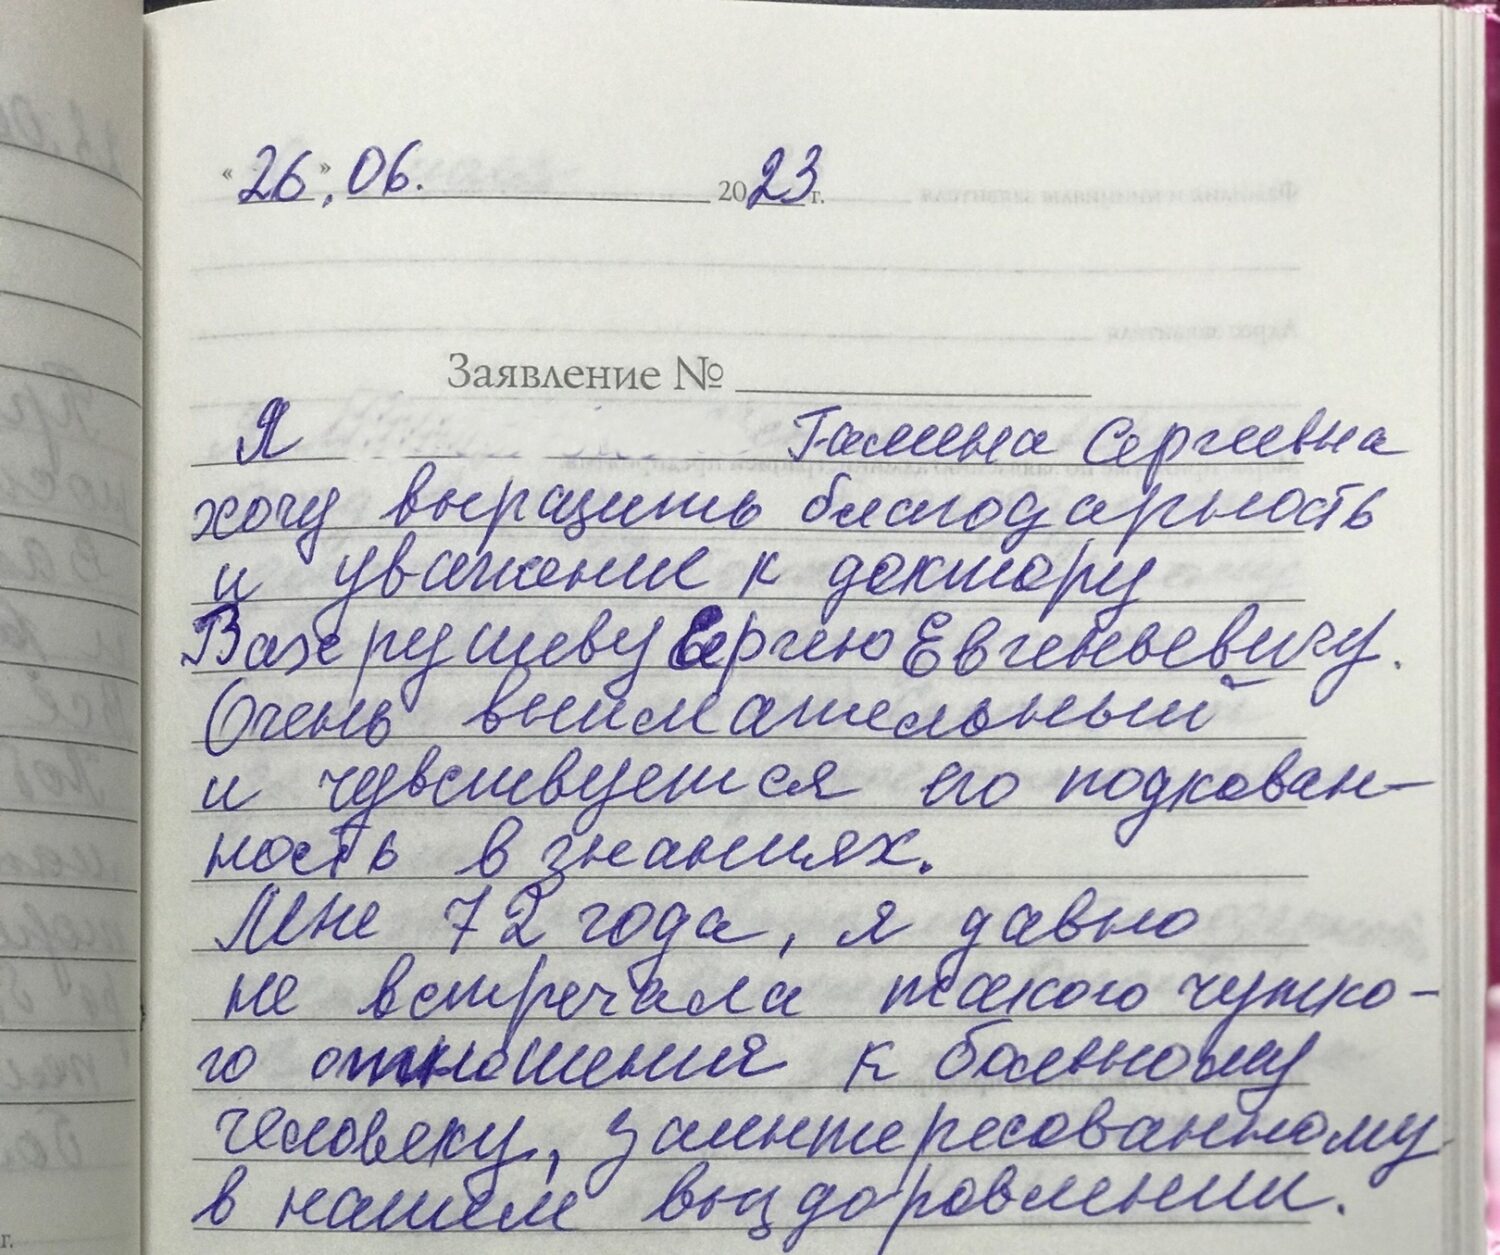 « 26 », 06. 2023 г.
Заявление №
Я Галина Сергеевна
хочу выразить благодарность
и уважение к доктору
Вахрушеву Сергею Евгеньевичу.
Очень внимательный
и чувствуется его подкован-
ность в знаниях.
Мне 72 года, я давно
не встречала такого чутко-
го отношения к больному
человеку, заинтересованному
в нашем выздоровлении.